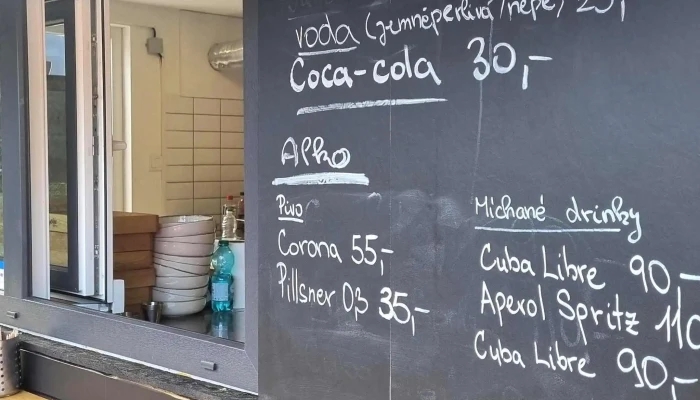 voda (jemněperlivá/nepe) 25,
Coca-cola 30,-
Alko
Pivo
Corona 55,-
Pillsner 0,3 35,-
Míchané drinky
Cuba Libre 90,-
Aperol Spritz 110
Cuba Libre 90,-